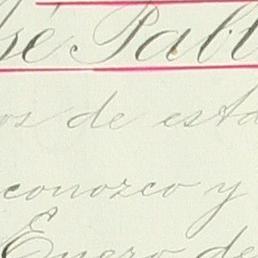 sé Pabl
os de esta
conozco y
Enero de